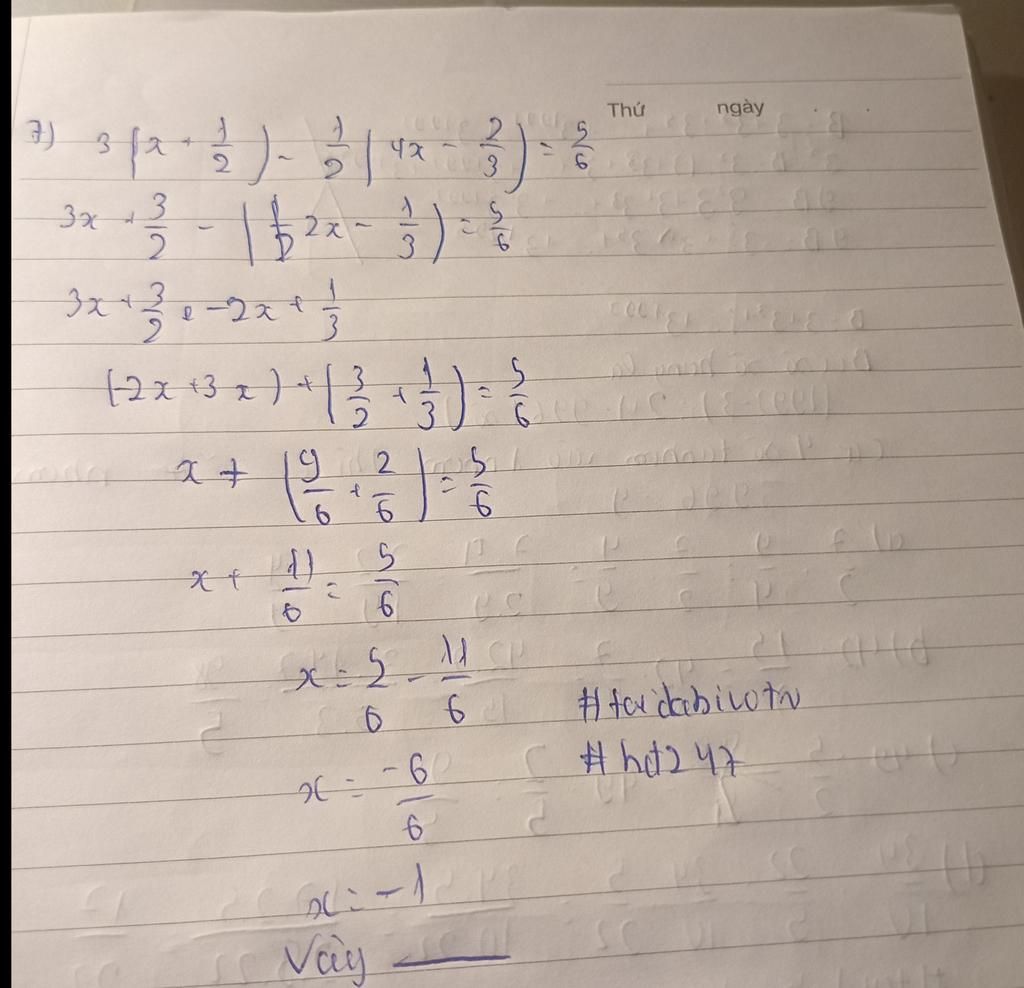 Thứ ngày
7) 3(x + 1/2) - 1/2(4x - 2/3) = 5/6
3x + 3/2 - (2x - 1/3) = 5/6
3x + 3/2 - 2x + 1/3
(-2x + 3x) + (3/2 + 1/3) = 5/6
x + (9/6 + 2/6) = 5/6
x + 11/6 = 5/6
x = 5/6 - 11/6
x = -6/6
x = -1
Vậy
#hd247